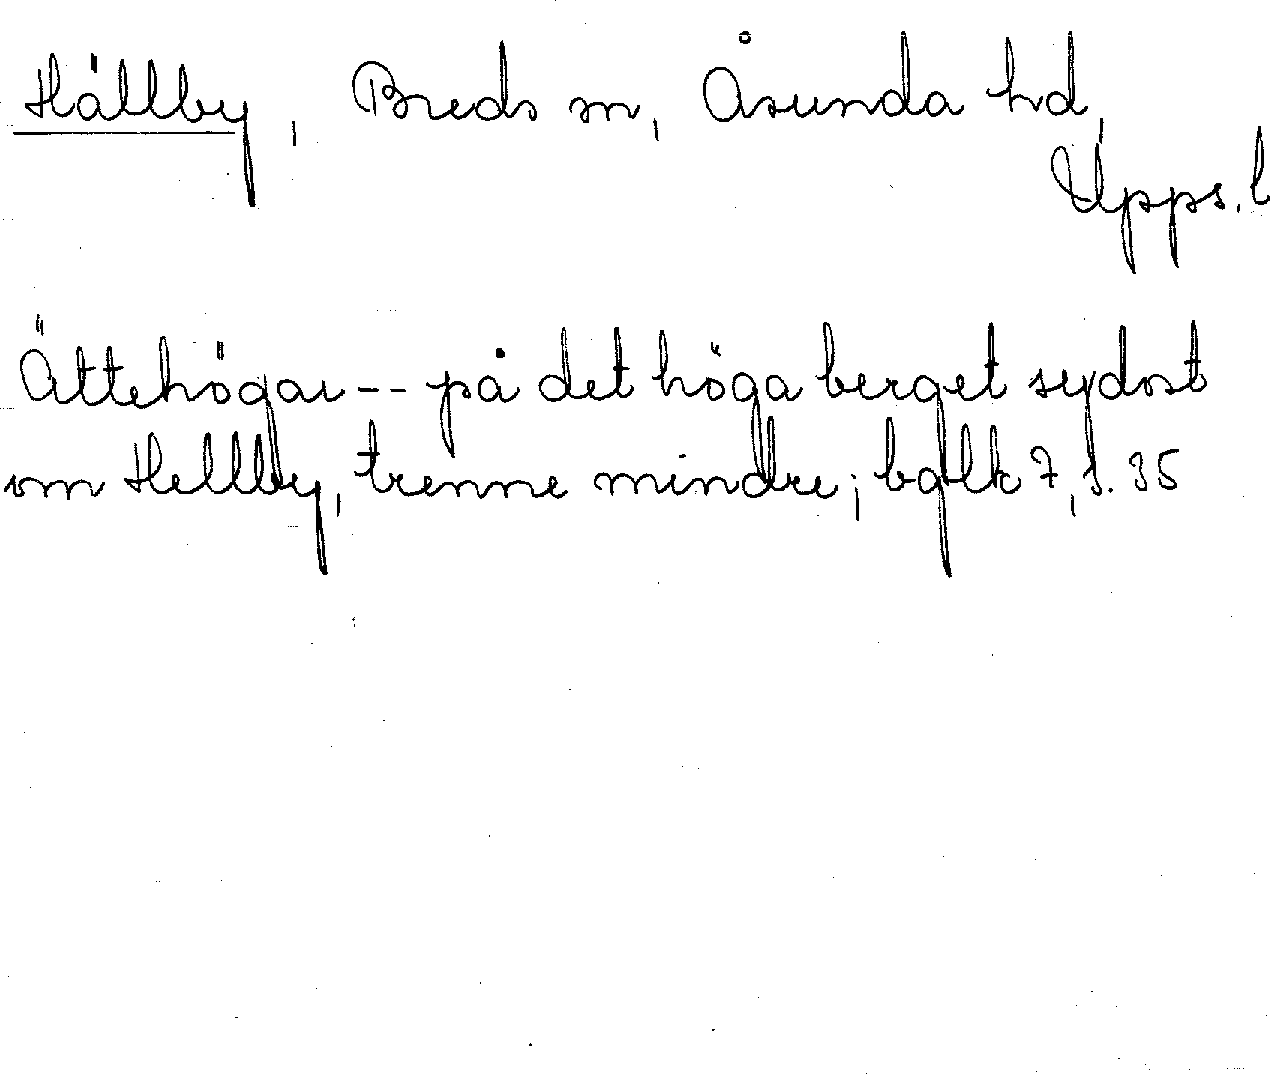 Hällby, Breds sn, Åsunda hd,
Upps. l
Ättehögar -- på det höga berget sydost
om Hellby, trenne mindre; bqlk 7, s. 35